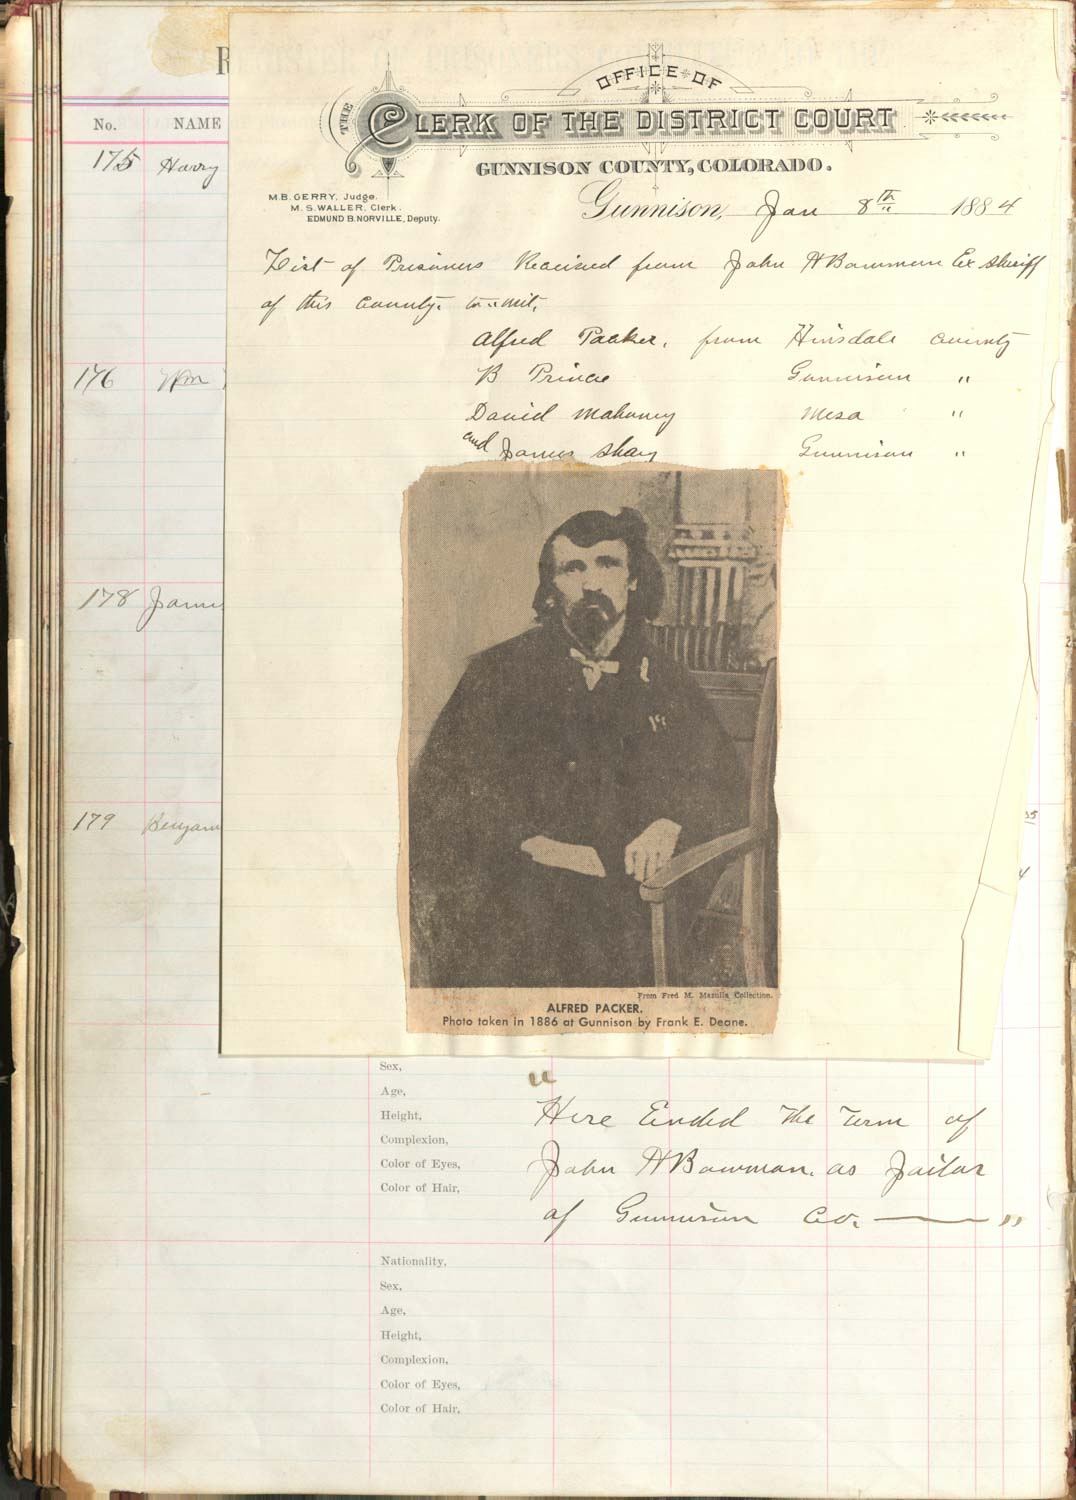 No. NAME
175 Harry
176 Wm
178 James
179 Benjam
OFFICE OF
THE CLERK OF THE DISTRICT COURT
GUNNISON COUNTY, COLORADO.
M.B. GERRY, Judge.
M.S. WALLER, Clerk.
EDMUND B. NORVILLE, Deputy.
Gunnison, Jan 8th 1884
List of Prisoners Received from John H Bowman Ex Sheriff
of this County. to wit,
Alfred Packer, from Hinsdale County
B Prince Gunnison "
David Mahoney Mesa "
and James Shay Gunnison "
From Fred M. Mazulla Collection.
ALFRED PACKER.
Photo taken in 1886 at Gunnison by Frank E. Deane.
Sex,
Age,
Height,
Complexion,
Color of Eyes,
Color of Hair,
"Here Ended The Term of
John H Bowman. as Jailor
of Gunnison Co. — "
Nationality,
Sex,
Age,
Height,
Complexion,
Color of Eyes,
Color of Hair,